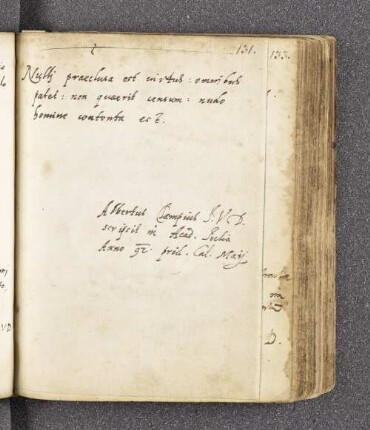 131. 133.
Nulli praeclusa est virtus: omnibus
patet: non quaerit censum: nudo
homine contenta est.
Albertus I.V.D.
scripsit in Acad. Julia
Anno 92. prid. Cal. Maij
VD
D.